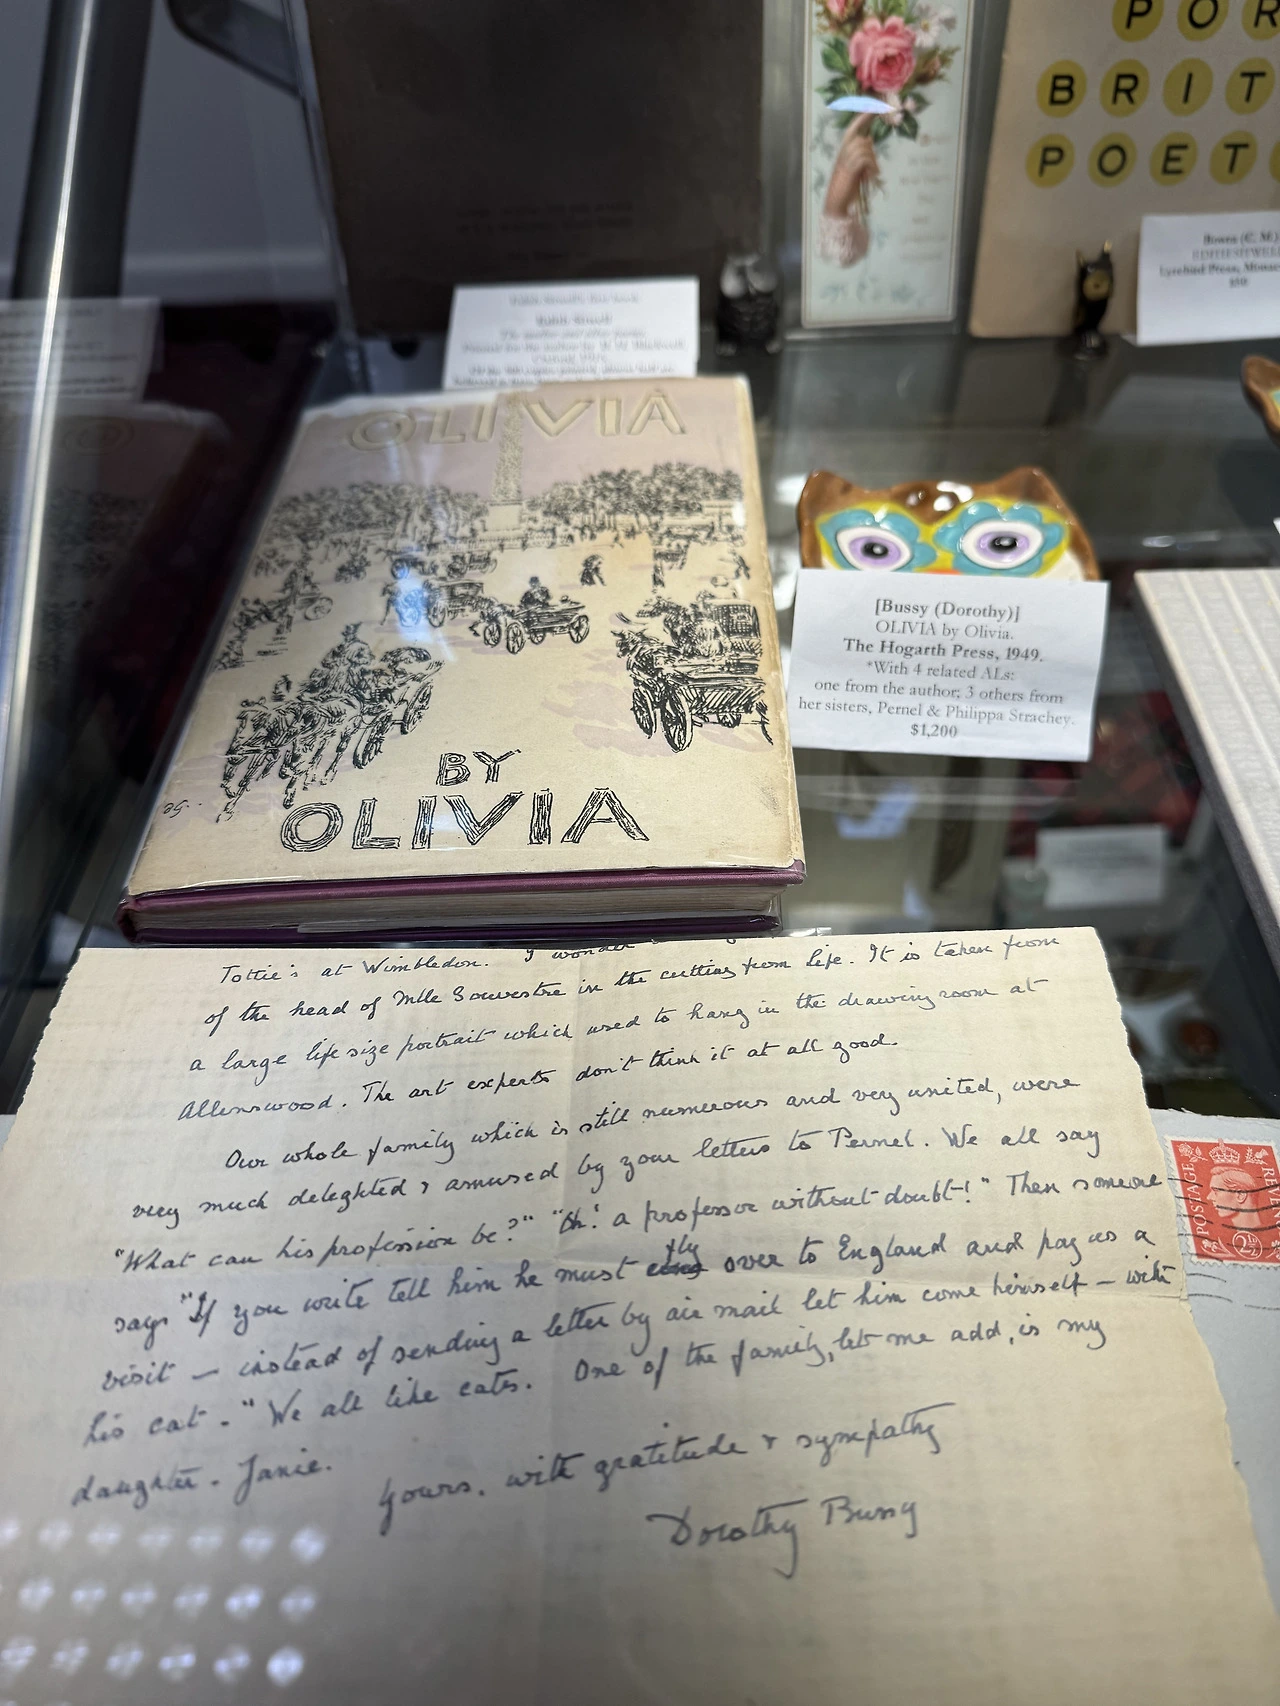 POR
BRIT
POET
Bowra (C. M.)
Lyrebird Press,
OLIVIA
BY
OLIVIA
[Bussy (Dorothy)]
OLIVIA by Olivia.
The Hogarth Press, 1949.
*With 4 related ALs:
one from the author; 3 others from
her sisters, Pernel & Philippa Strachey.
$1,200
Tottie's at Wimbledon. I wonder
of the head of Mlle Souvestre in the cutting from life. It is taken from
a large life size portrait which used to hang in the drawing room at
Allenswood. The art experts don't think it at all good.
Our whole family which is still numerous and very united, were
very much delighted & amused by your letters to Pernel. We all say
"What can his profession be?" "Oh! a professor without doubt!" Then someone
says "If you write tell him he must fly over to England and pay us a
visit — instead of sending a letter by air mail let him come himself — with
his cat." We all like cats. One of the family, let me add, is my
daughter. Janie.
Yours, with gratitude & sympathy
Dorothy Bussy
POSTAGE
REVEN
2½